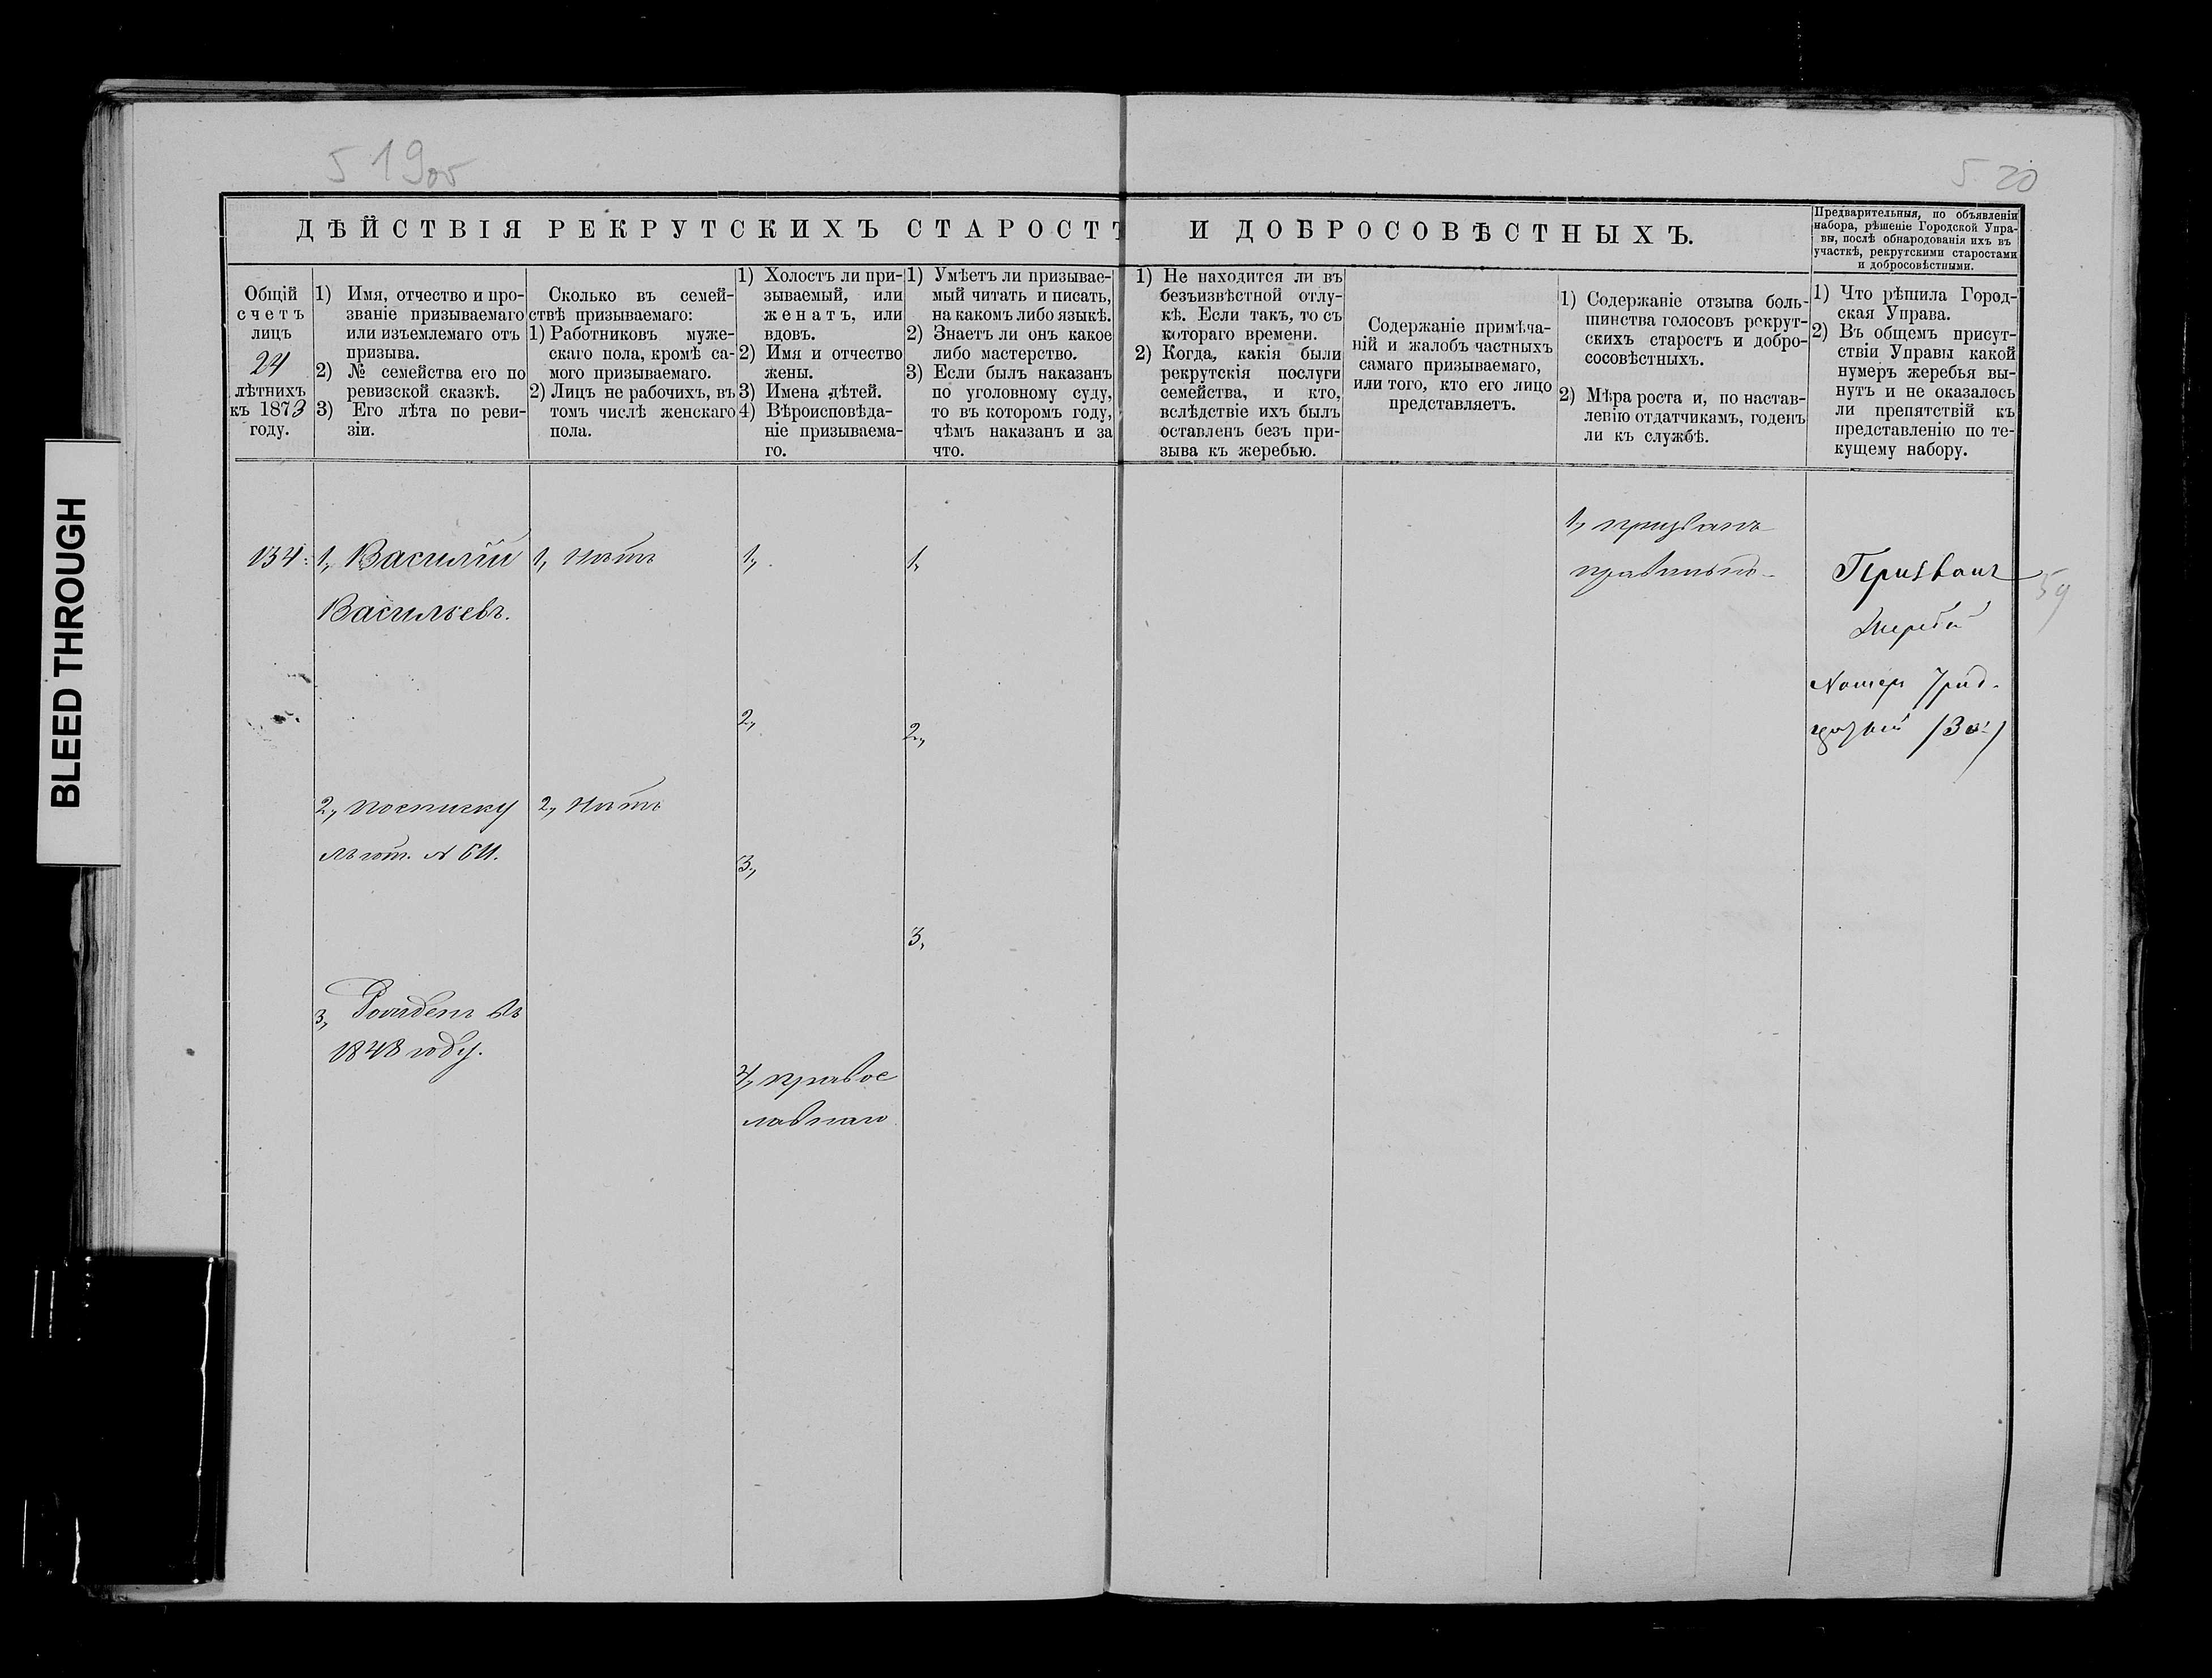 519об
520
BLEED THROUGH
ДѢЙСТВІЯ РЕКРУТСКИХЪ СТАРОСТЪ И ДОБРОСОВѢСТНЫХЪ.
Предварительныя, по объявленіи
набора, рѣшеніе Городской Упра-
вы, послѣ обнародованія ихъ въ
участкѣ, рекрутскими старостами
и добросовѣстными.
Общій
счетъ
лицъ
24
лѣтнихъ
къ 1873
году.
1) Имя, отчество и про-
званіе призываемаго
или изъемлемаго отъ
призыва.
2) № семейства его по
ревизской сказкѣ.
3) Его лѣта по реви-
зіи.
Сколько въ семей-
ствѣ призываемаго:
1) Работниковъ муже-
скаго пола, кромѣ са-
мого призываемаго.
2) Лицъ не рабочихъ, въ
томъ числѣ женскаго
пола.
1) Холостъ ли при-
зываемый, или
женатъ, или
вдовъ.
2) Имя и отчество
жены.
3) Имена дѣтей.
4) Вѣроисповѣда-
ніе призываема-
го.
1) Умѣетъ ли призывае-
мый читать и писать,
на какомъ либо языкѣ.
2) Знаетъ ли онъ какое
либо мастерство.
3) Если былъ наказанъ
по уголовному суду,
то въ которомъ году,
чѣмъ наказанъ и за
что.
1) Не находится ли въ
безъизвѣстной отлу-
кѣ. Если такъ, то съ
котораго времени.
2) Когда, какія были
рекрутскія послуги
семейства, и кто,
вслѣдствіе ихъ былъ
оставленъ безъ при-
зыва къ жеребью.
Содержаніе примѣча-
ній и жалобъ частныхъ
самаго призываемаго,
или того, кто его лицо
представляетъ.
1) Содержаніе отзыва боль-
шинства голосовъ рекрут-
скихъ старостъ и добро-
совѣстныхъ.
2) Мѣра роста и, по настав-
ленію отдатчикамъ, годенъ
ли къ службѣ.
1) Что рѣшила Город-
ская Управа.
2) Въ общемъ присут-
ствіи Управы какой
нумеръ жеребья вы-
нутъ и не оказалось
ли препятствій къ
представленію по те-
кущему набору.
134.
1, Василій
Васильевъ.
2, по списку
льгот. №
3, Рожденъ въ
1848 году.
1, нѣтъ
2, нѣтъ
1,
2,
3,
4, правос
лавнаго
1,
2,
3,
1, призванъ
правильно
Призванъ
Жребій
Номеръ Трид-
цатый /30й/
59